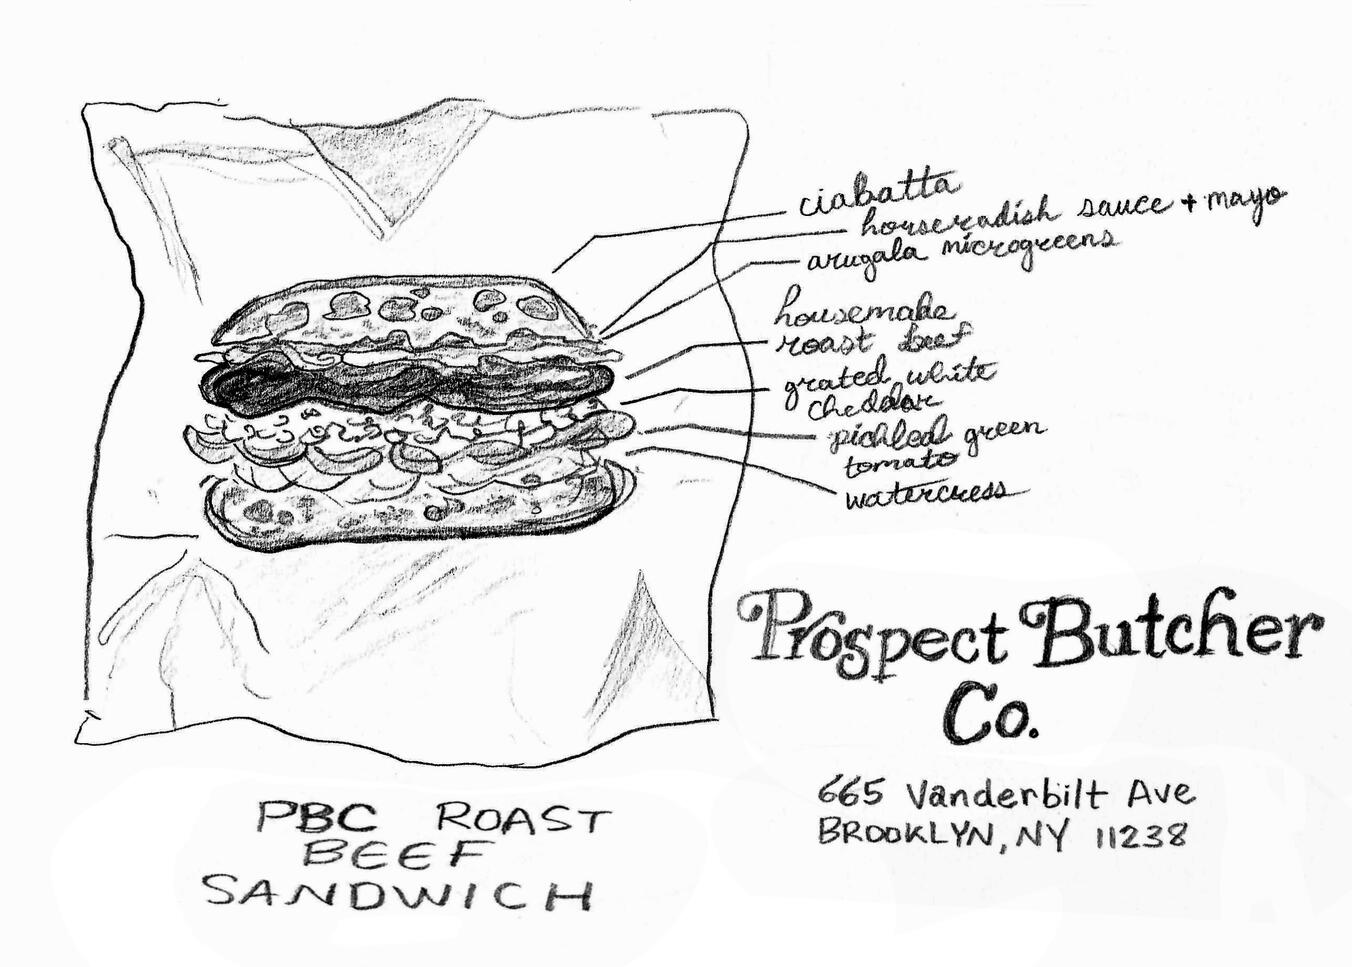 ciabatta
horseradish sauce + mayo
arugala microgreens
housemade
roast beef
grated white
cheddar
pickled green
tomato
watercress
Prospect Butcher
Co.
665 Vanderbilt Ave
BROOKLYN, NY 11238
PBC ROAST
BEEF
SANDWICH